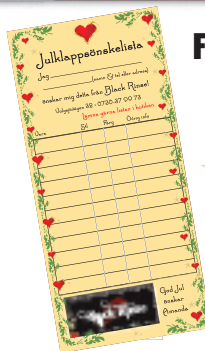 Julklappsönskelista
Jag (namn & tel eller adress)
önskar mig detta från Black Rinse!
Vulgatavägen 32 - 0730-37 00 73
Lämna gärna listan i butiken.
Vara Stl Färg Övrig info
God Jul
önskar
Amanda
F